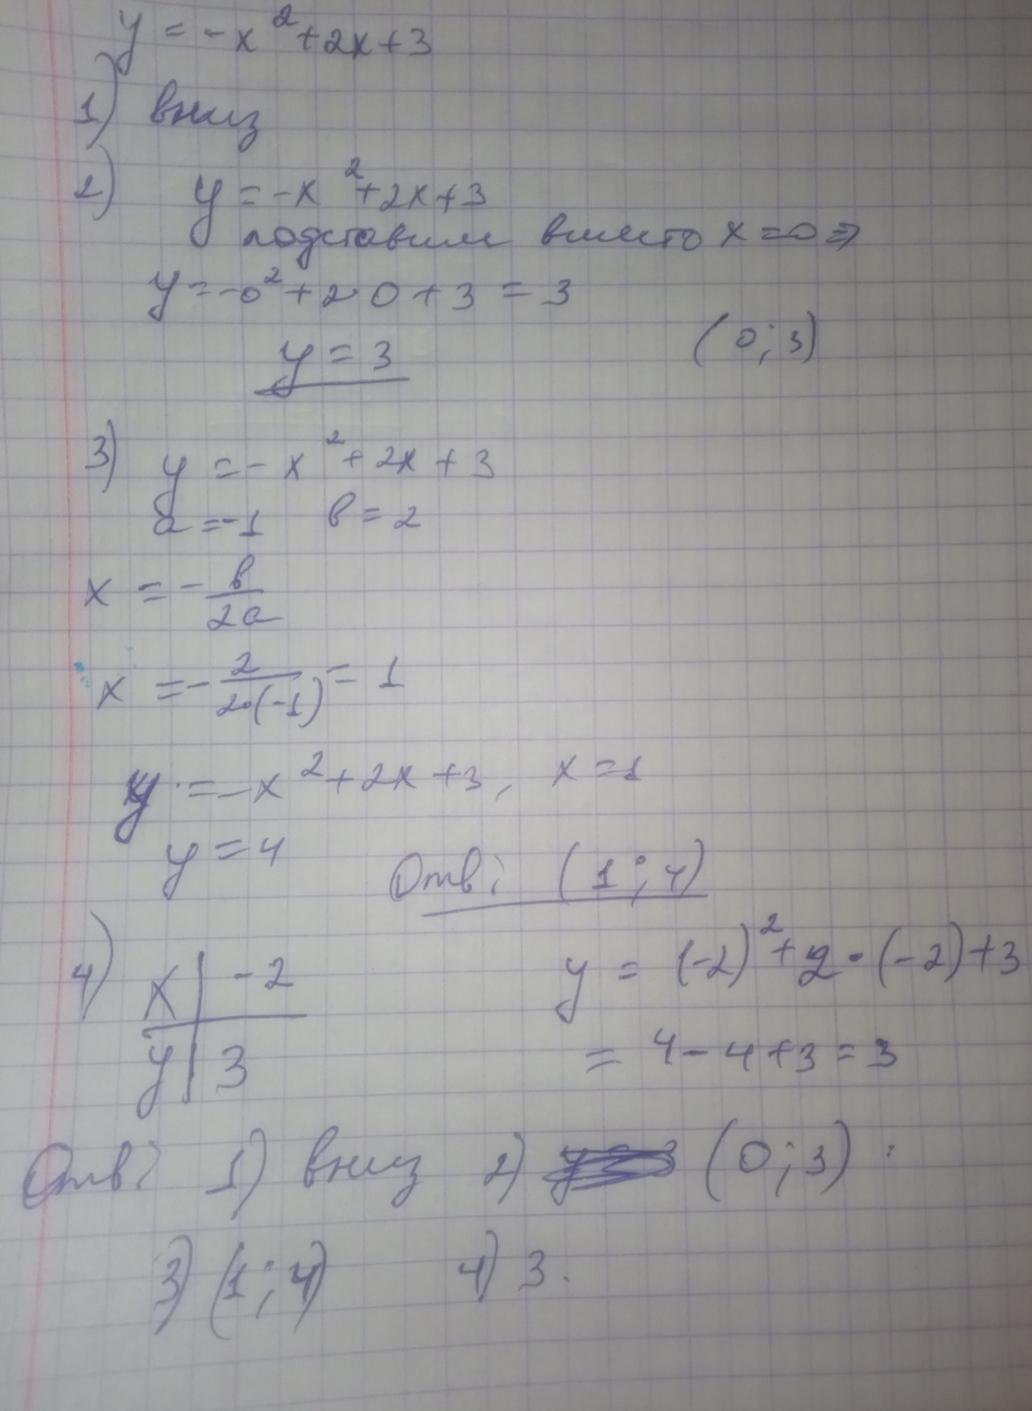 y = -x² + 2x + 3
1) вниз
2) y = -x² + 2x + 3
подставим вместо x = 0 ⇒
y = -0² + 2·0 + 3 = 3
y = 3 (0; 3)
3) y = -x² + 2x + 3
a = -1 b = 2
x = -b/2a
x = -2/2·(-1) = 1
y = -x² + 2x + 3, x = 1
y = 4
Отв: (1; 4)
4) x | -2 y = (-2)² + 2·(-2) + 3
y | 3 = 4 - 4 + 3 = 3
Отв: 1) вниз 2) (0; 3)
3) (1; 4) 4) 3.